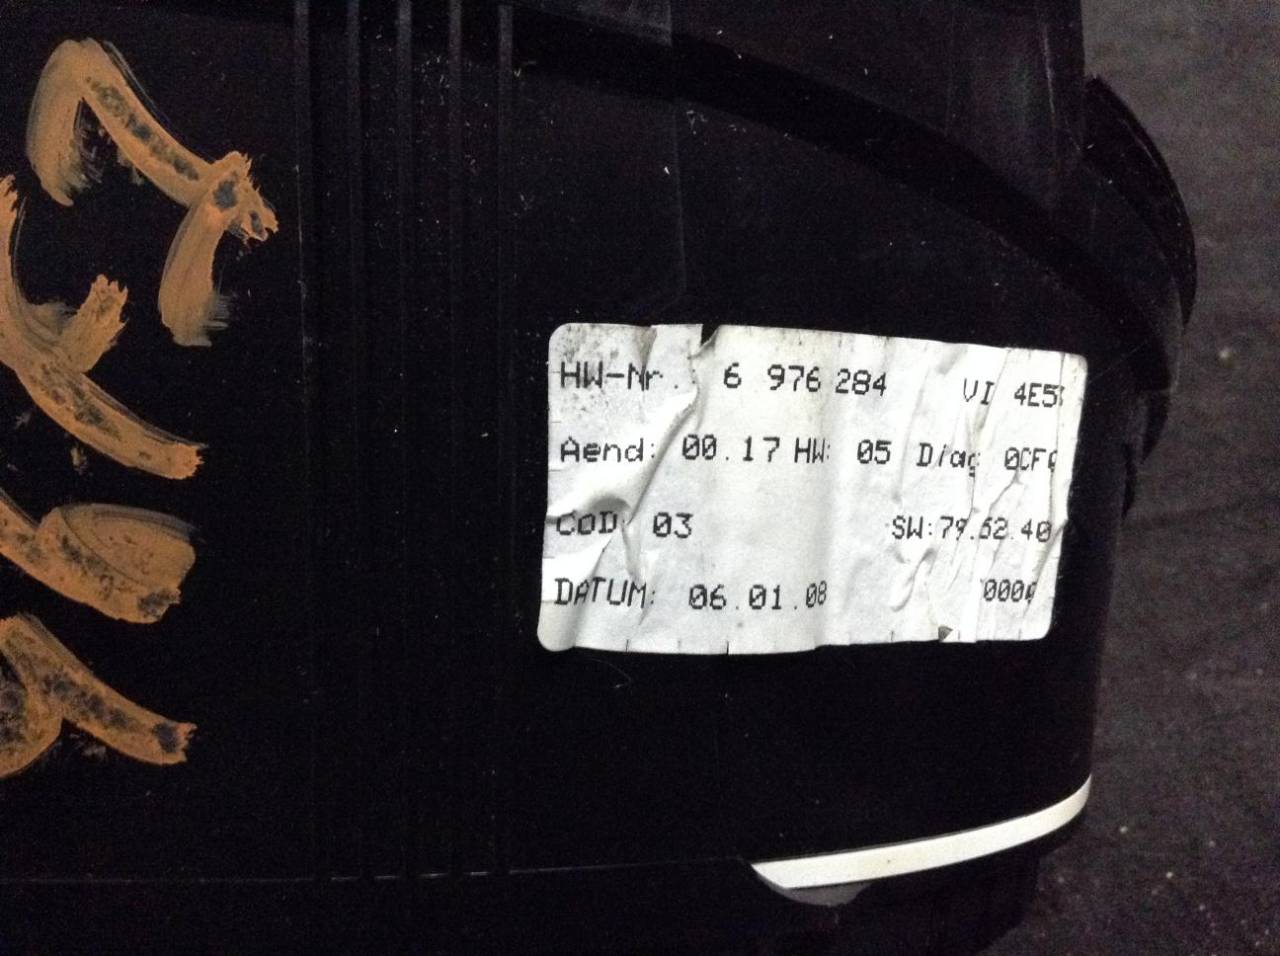 HW-Nr. 6 976 284 VI 4E5
Aend: 00.17 HW: 05 Diag 0CF
CoD: 03 SW:79.52.40
DATUM: 06.01.08 000